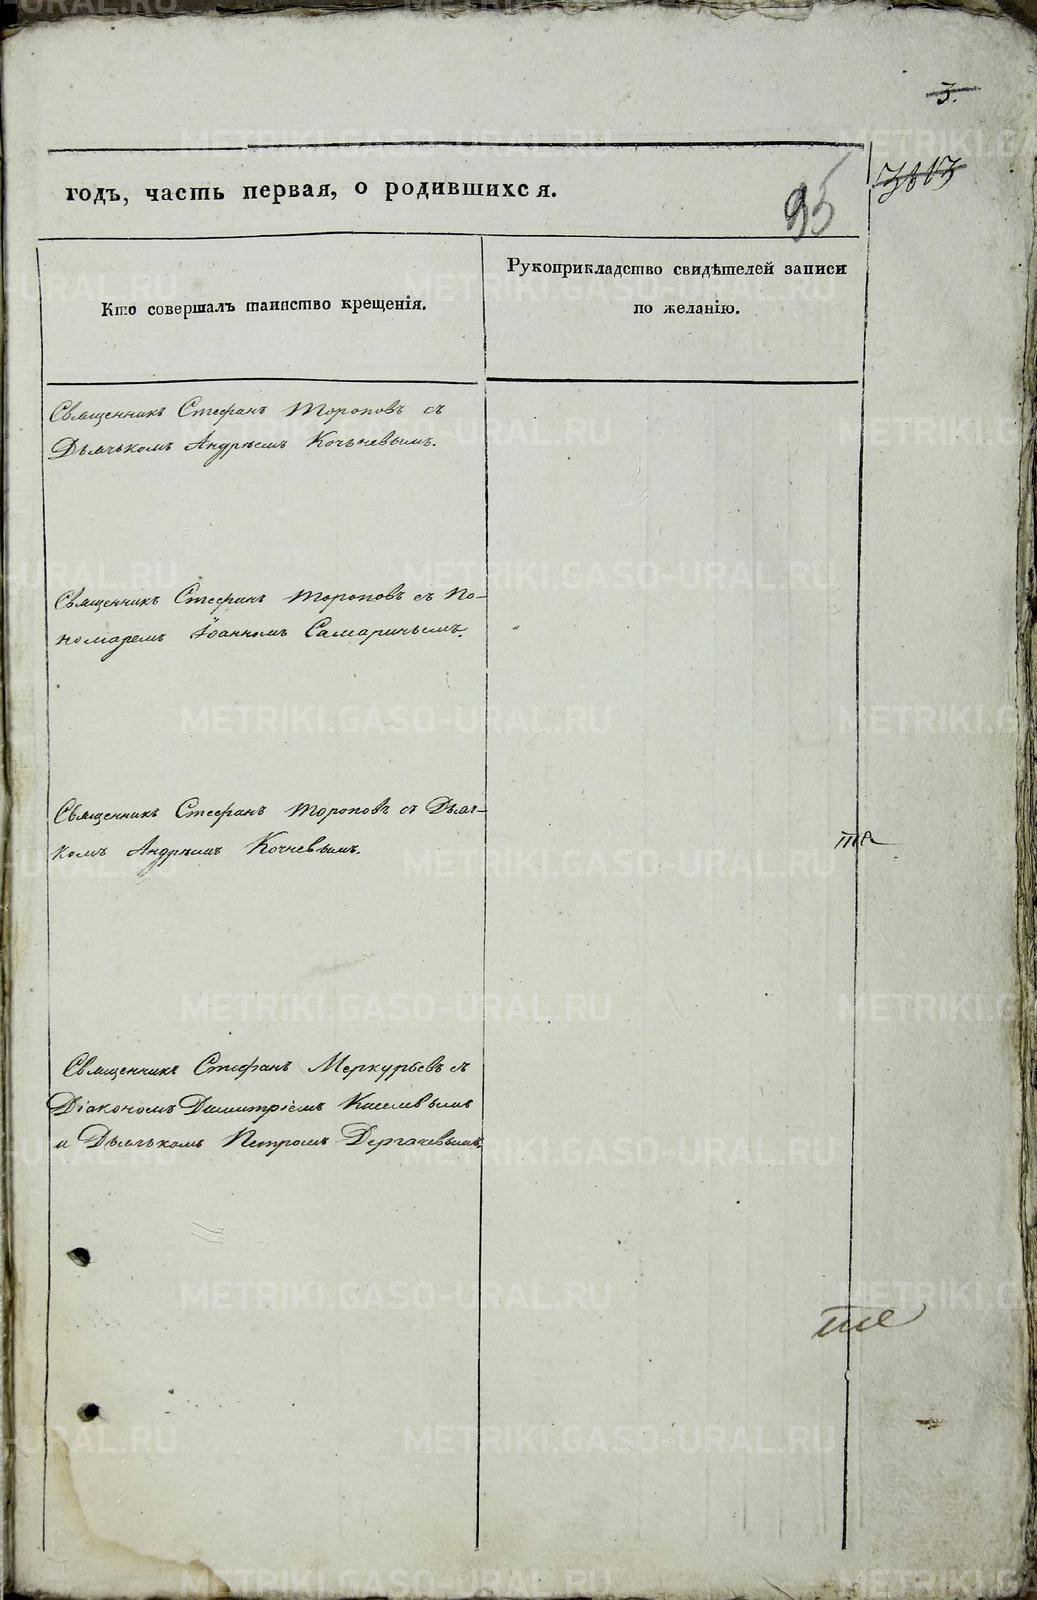 3.
годъ, часть первая, о родившихся.
95
Кто совершалъ таинство крещенія.
Рукоприкладство свидѣтелей записи
по желанію.
Священникъ Стефанъ Тороповъ съ
Дьячькомъ Андрѣемъ Кочьневымъ.
Священникъ Стефанъ Тороповъ съ По-
номаремъ Іоанномъ Самаринымъ.
Священникъ Стефанъ Тороповъ съ Дьяч-
комъ Андрѣемъ Кочневымъ.
Священникъ Стефанъ Меркурьевъ съ
Діакономъ Димитріемъ Киселевымъ
и Дьячькомъ Петромъ Дергачевымъ.
METRIKI.GASO-URAL.RU